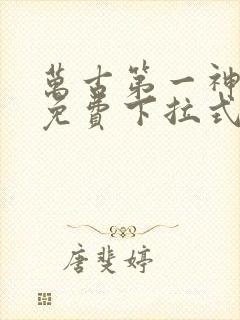 萬古第一神
免費下拉式
唐斐婷